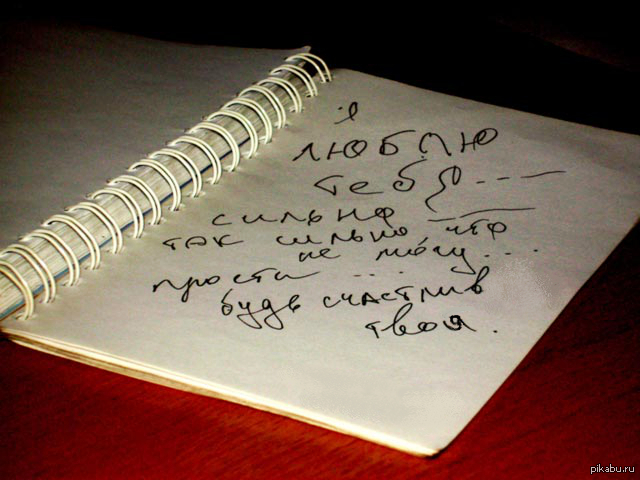 я
люблю
тебя - - —
сильно
так сильно что
не могу . . .
прости . . .
будь счастлив
твоя.
pikabu.ru